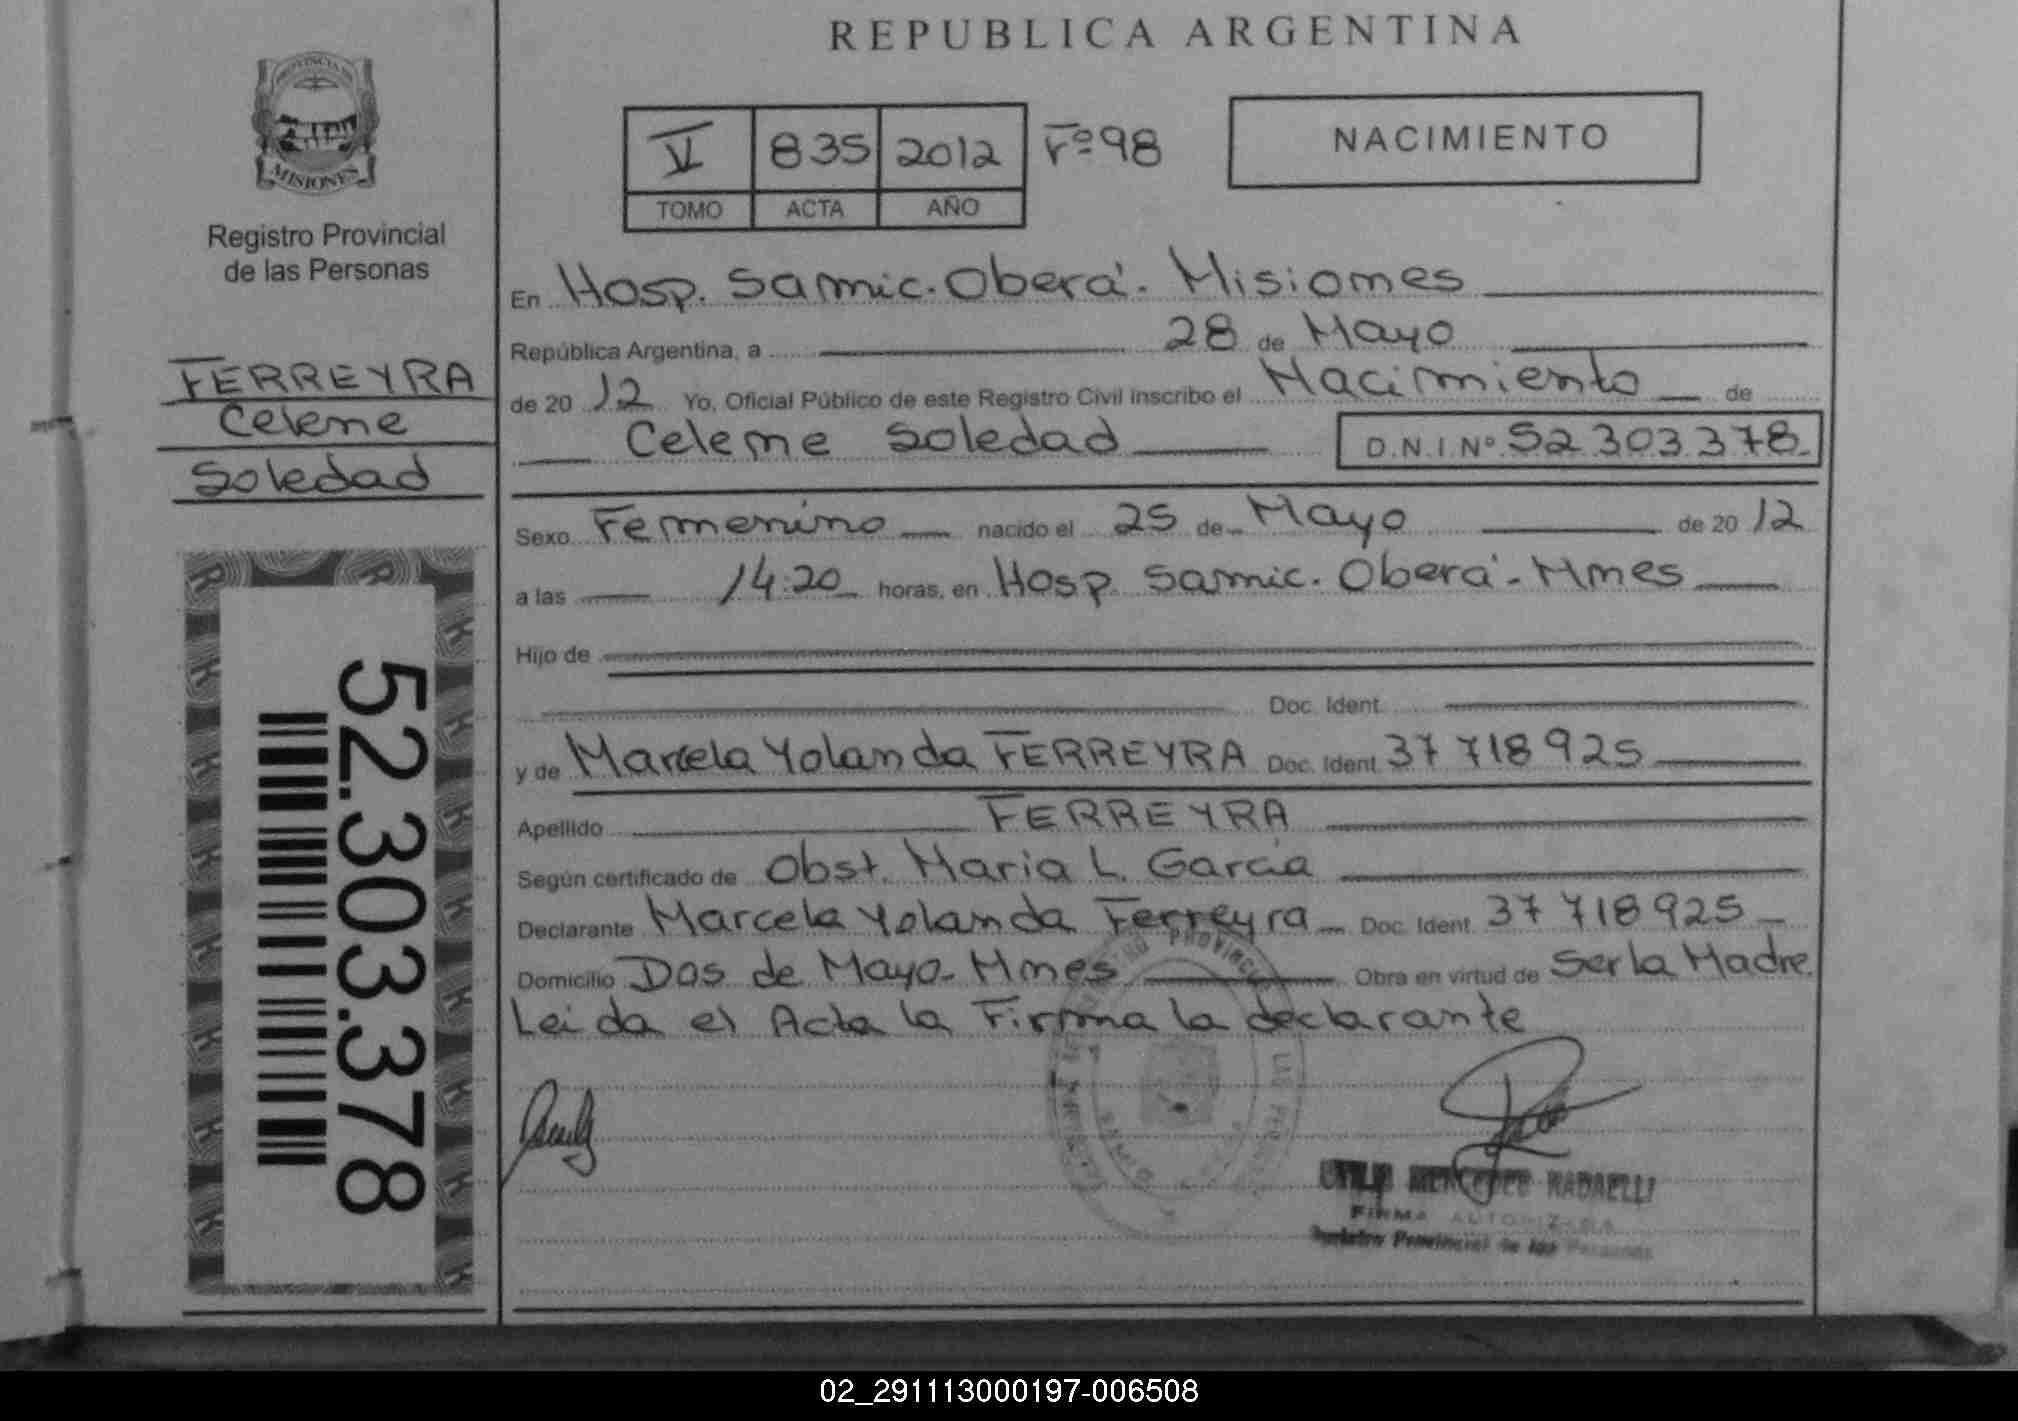 REPUBLICA ARGENTINA
PROVINCIA DE
MISIONES
Registro Provincial
de las Personas
V 835 2012 Fº 98
TOMO ACTA AÑO
NACIMIENTO
FERREYRA
Celene
Soledad
52.303.378
En Hosp. Samic. Oberá. Misiones
República Argentina, a 28 de Mayo
de 2012 Yo, Oficial Público de este Registro Civil inscribo el Nacimiento de
Celene Soledad D.N.I. Nº 52 303 378
Sexo Femenino nacido el 25 de Mayo de 2012
a las 14:20 horas, en Hosp. Samic. Oberá - Mnes
Hijo de
Doc. Ident.
y de Marcela Yolanda FERREYRA Doc. Ident. 37 718 925
Apellido FERREYRA
Según certificado de Obst. Maria L. García
Declarante Marcela Yolanda Ferreyra Doc. Ident. 37 718 925
Domicilio Dos de Mayo - Mnes Obra en virtud de Ser la Madre.
Leida el Acta la Firma la declarante
RADAELLI
FIRMA AUTORIZADA
Registro Provincial de las Personas
02_291113000197-006508